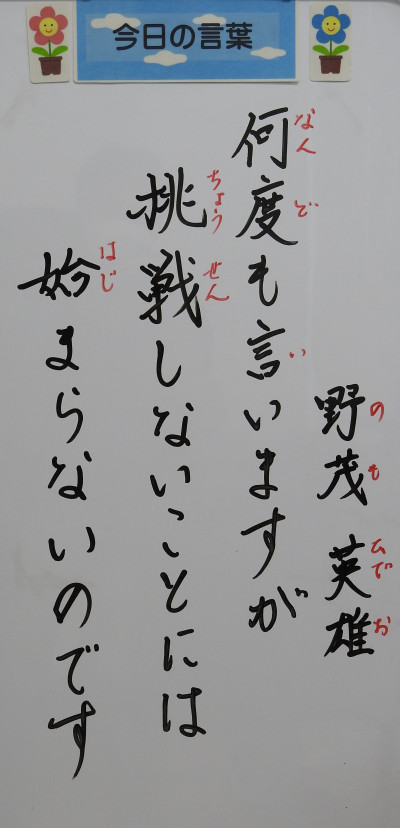 今日の言葉
野茂 英雄
のも ひでお
何度も言いますが
なんど い
挑戦しないことには
ちょうせん
始まらないのです
はじ